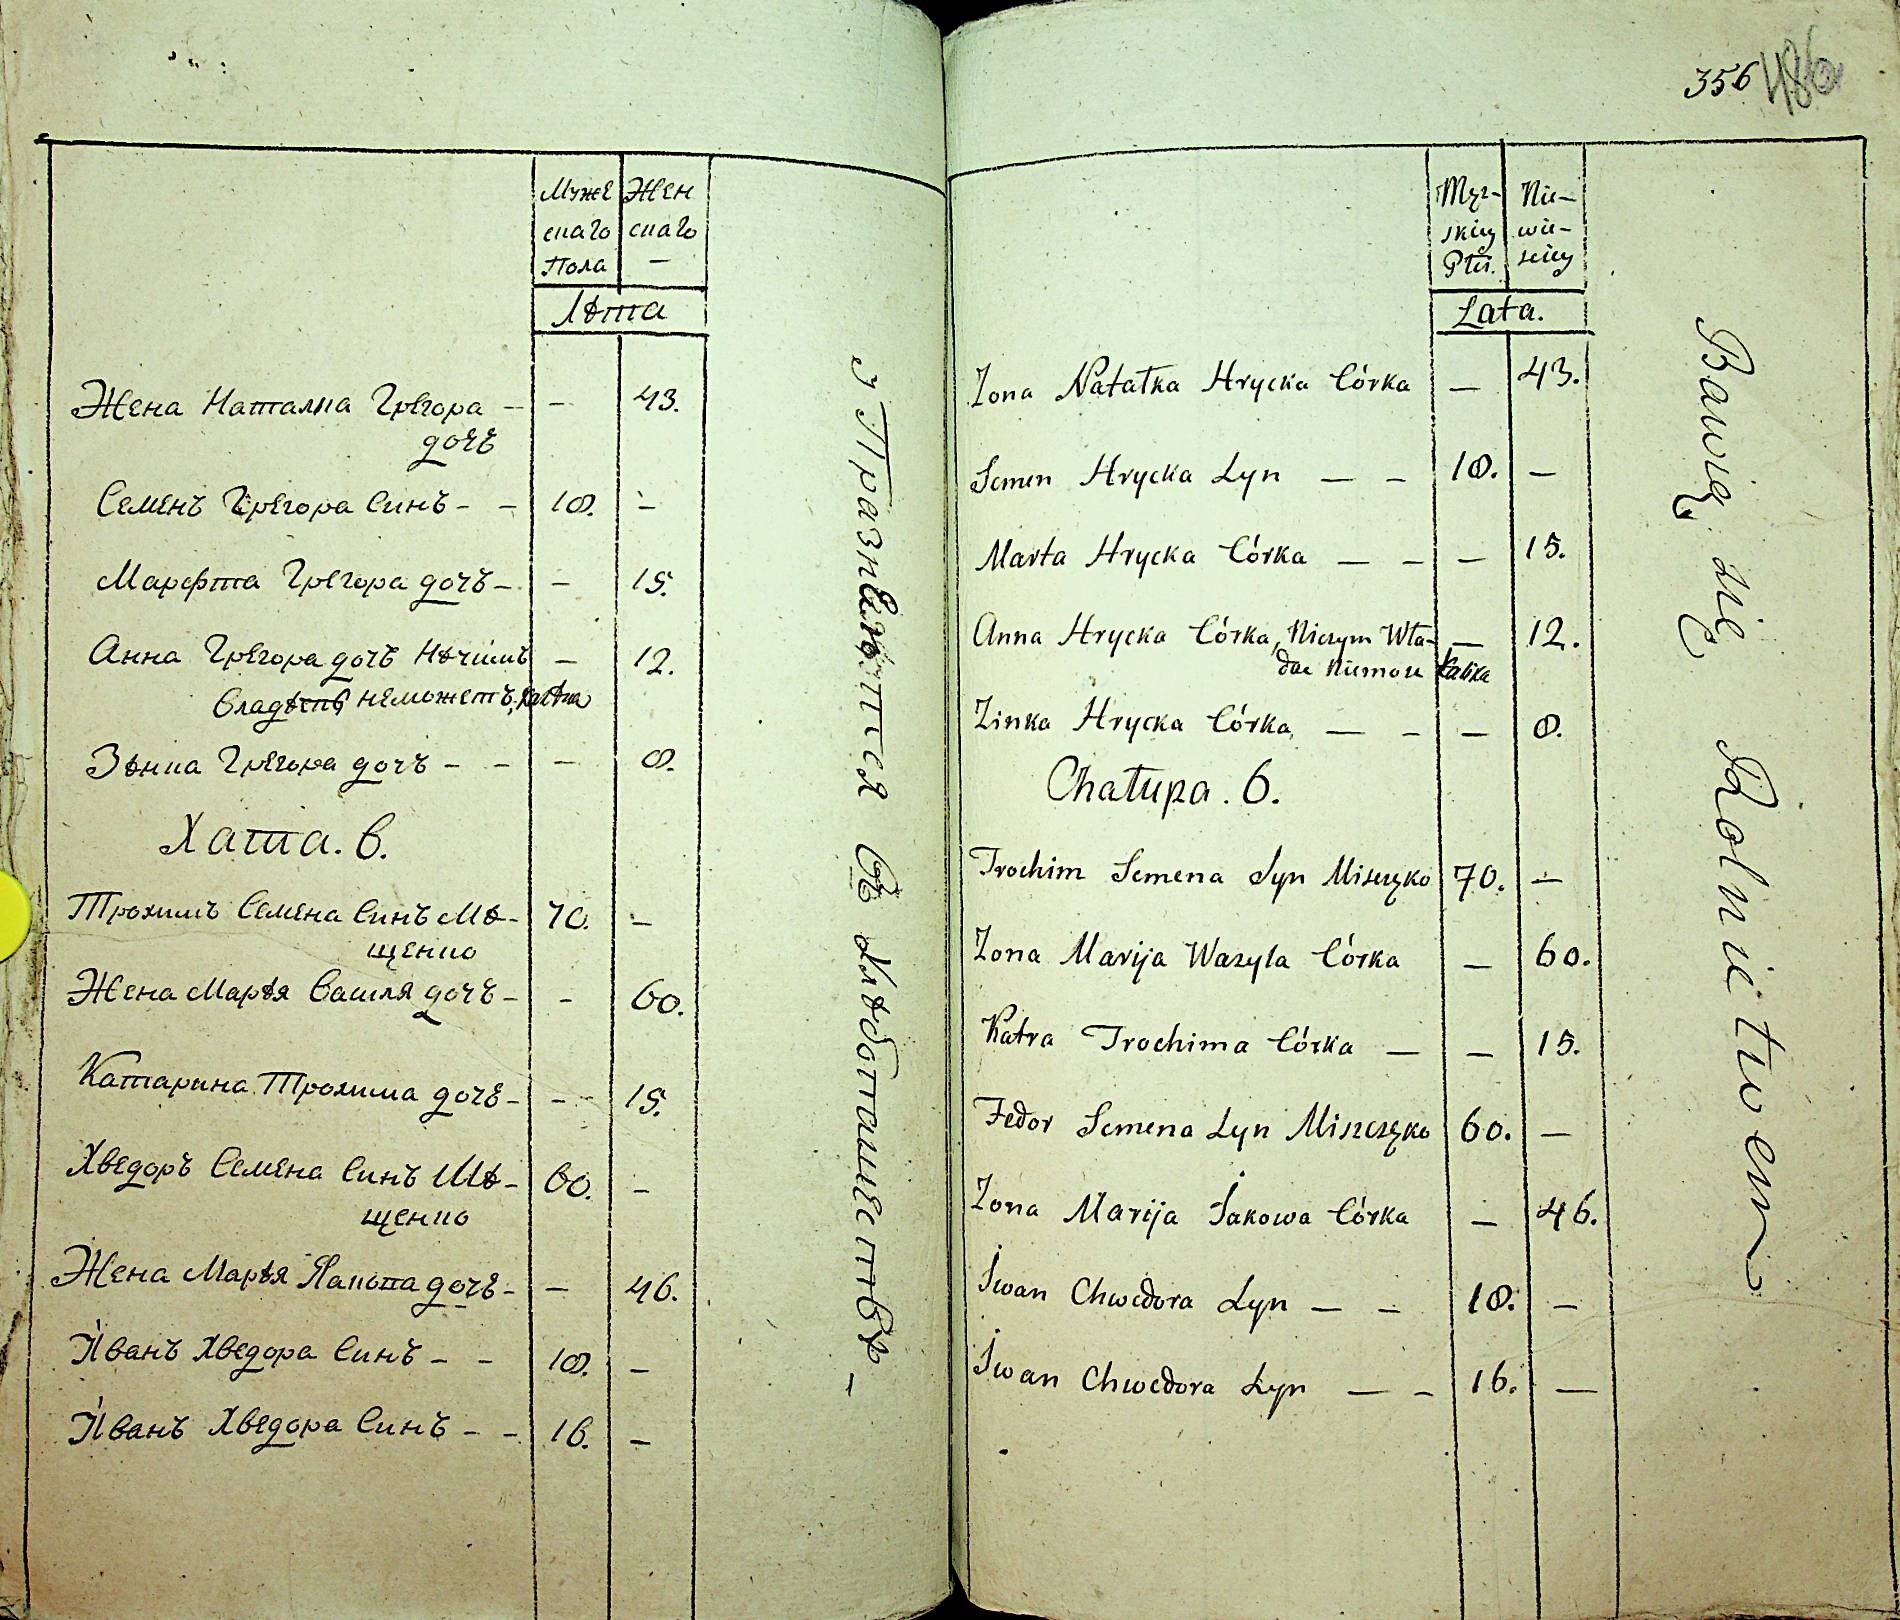 Муже
скаго
Пола
Жен
скаго
—
Лѣта
Жена Наталка Грегора — — 43.
дочь
Семенъ Грегора Синъ - - 18. —
Марфта Грегора дочь - — 15.
Анна Грегора дочь Нѣчимъ — 12.
Владѣть неможетъ, калѣка
Зѣнка Грегора дочъ - - — 8.
Хата. 6.
Трохимъ Семена Синъ Мѣ- 70. —
щенко
Жена Марѣя Василя дочъ - - 60.
Катарина Трохима дочь - - - 15.
Хведоръ Семена Синъ Мѣ- 60. —
щенко
Жена Марѣя Якова дочь - — 46.
Иванъ Хведора Синъ - - 18. —
Иванъ Хведора Синъ - - 16. —
Въ Хлѣбопашествѣ —
356 486
Męz-
skiey
Płci.
Nie-
wie-
sciey
Lata.
Zona Natałka Hrycka Córka — 43.
Semen Hrycka Syn — - 18. —
Marta Hrycka Córka — - — 15.
Anna Hrycka Córka, Niczym Wła- — 12.
dac Niemoze Kalika
Zinka Hrycka Córka — - — 8.
Chałupa. 6.
Trochim Semena Syn Miszczęko 70. —
Zona Marija Wasyla Córka — 60.
Katra Trochima Córka — — 15.
Fedor Semena Syn Miszczęko 60. —
Zona Marija Jakowa Córka — 46.
Iwan Chwedora Syn — - 18. —
Iwan Chwedora Syn — - 16. —
Bawią się Rolnictwem